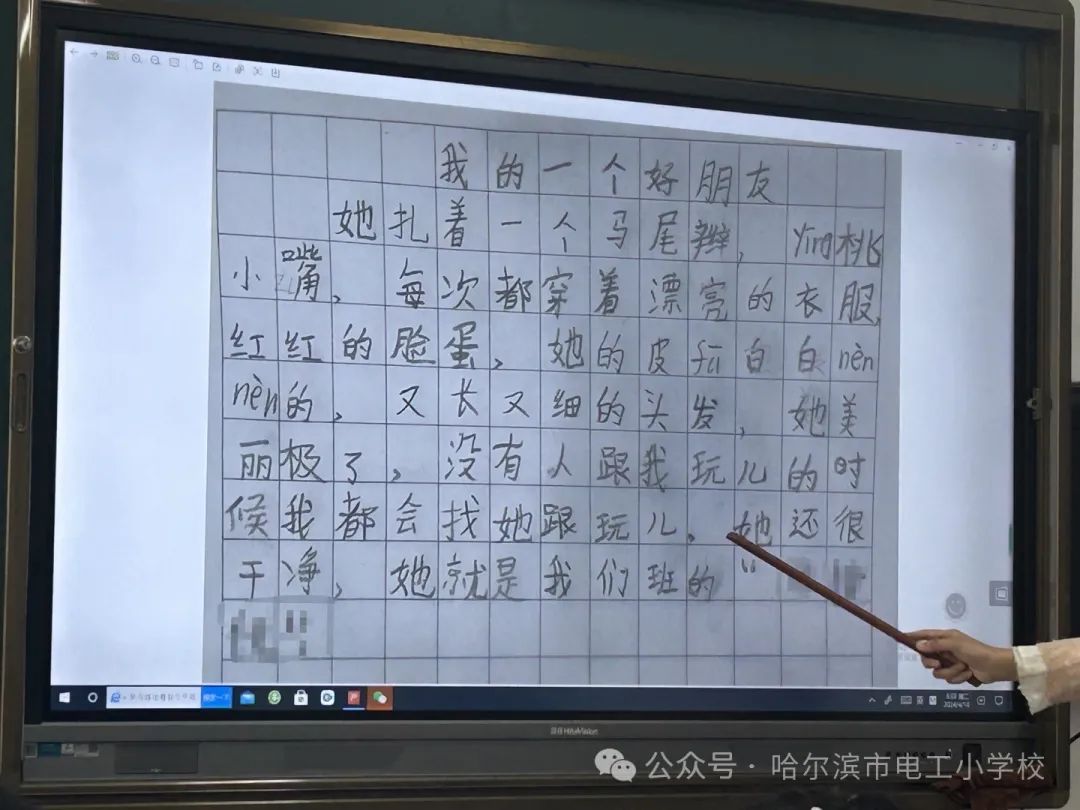 我的一个好朋友
她扎着一个马尾辫，yīng桃
小嘴，每次都穿着漂亮的衣服，
红红的脸蛋，她的皮fū白白nèn
nèn的，又长又细的头发，她美
丽极了，没有人跟我玩儿的时
候我都会找她跟玩儿。她还很
干净，她就是我们班的“
HiteVision
公众号·哈尔滨市电工小学校